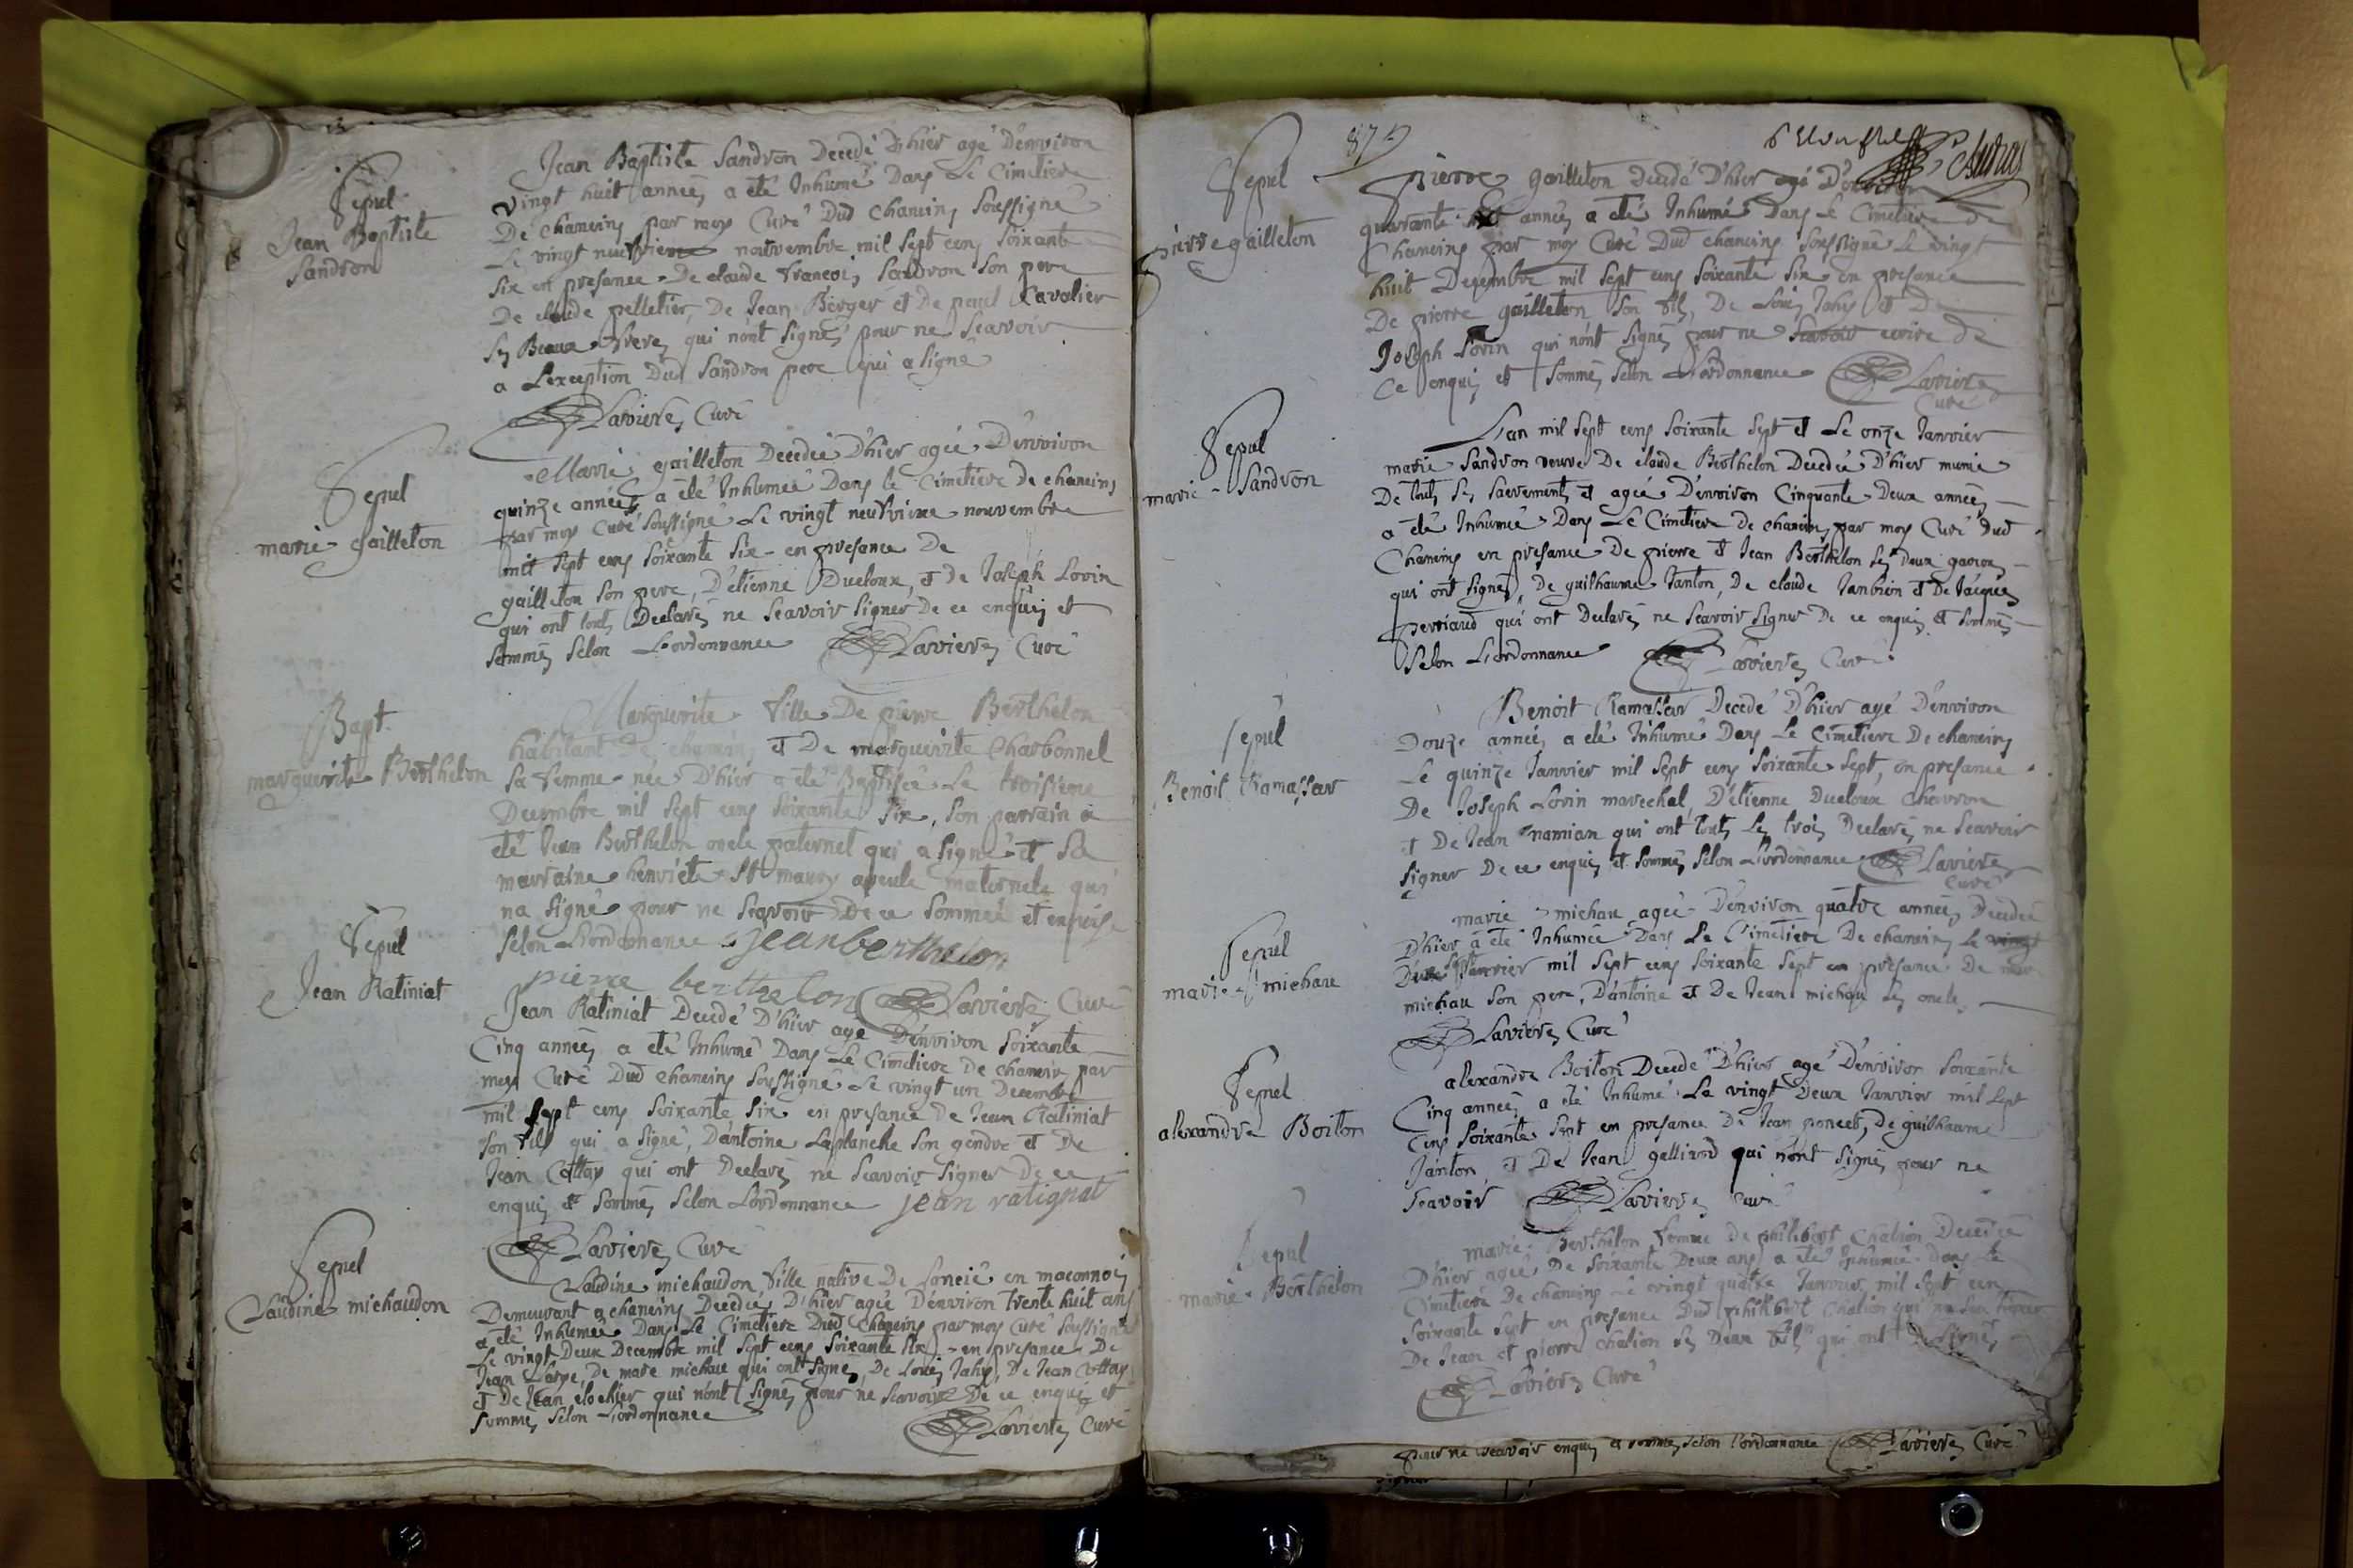 Sepul
Jean Baptiste
Sandron
Jean Baptiste Sandron Decedé D'hier agé D'environ
vingt huit années a eté Inhumé Dans Le Cimetiere
De chaneins par moy Curé Dud chaneins Soussigné
Le vingt neufvieme novembre mil Sept cens Soixante
Six en presance De claude francois Sandron Son pere
De claude pelletier, De Jean Berger et De paul Cavalier
Ses Beaux freres qui n'ont Signés pour ne Scavoir
a L'exception Dud Sandron pere qui a Signé
Lavieres Curé
Sepul
marie gailleton
Marie gailleton Decedée D'hier agée D'environ
quinze années a eté Inhumée Dans le Cimetiere De chaneins
par moy Curé Soussigné Le vingt neufvieme novembre
mil Sept cens Soixante Six en presance De
gailleton Son pere, D'etienne Ducloux, et De Joseph Lorin
qui ont touts Declarés ne Scavoir Signer De ce enquis et
Sommés Selon L'ordonnance Lavieres Curé
Bapt.
marguerite Berthelon
Marguerite fille De pierre Berthelon
habitant De chaneins et De marguerite Charbonnel
Sa femme née D'hier a eté Baptisée Le troisieme
Decembre mil Sept cens Soixante Six, Son parrain a
eté Jean Berthelon oncle paternel qui a Signé et Sa
marraine henriete St maury ayeule maternele qui
na Signé pour ne Scavoir De ce Sommée et enquise
Selon L'ordonnance jean berthelon
pierre berthelon Lavieres Curé
Sepul
Jean Ratiniat
Jean Ratiniat Decedé D'hier agé D'environ Soixante
Cinq années a eté Inhumé Dans Le Cimetiere De chaneins par
moy Curé Dud chaneins Soussigné Le vingt un Decembre
mil Sept cens Soixante Six en presance De Jean Ratiniat
Son fils qui a Signé, D'antoine Laplanche Son gendre et De
Jean Cottay qui ont Declarés ne Scavoir Signer De ce
enquis et Sommés Selon L'ordonnance jean ratignat
Lavieres Curé
Sepul
Claudine michaudon
Claudine michaudon fille native De Lancié en maconnois
Demeurant a chaneins Decedée D'hier agée D'environ trente huit ans
a eté Inhumée Dans Le Cimetiere Dud Chaneins par moy Curé Soussigné
Le vingt Deux Decembre mil Sept cens Soixante Six en presance De
Jean Large, De marc michau qui ont Signés, De Louis Jahy, De Jean Cottay
et De Jean clochier qui n'ont Signés pour ne Scavoir De ce enquis et
Sommés Selon L'ordonnance Lavieres Curé
87
Sepul
pierre gailleton
pierre gailleton Decedé D'hier agé D'environ
quarante années a eté Inhumé Dans Le Cimetiere De
Chaneins par moy Curé Dud chaneins Soussigné Le vingt
huit Decembre mil Sept cens Soixante Six en presance
De pierre gailleton Son fils, De Louis Jahy et De
Joseph Lorin qui n'ont Signés pour ne Scavoir ecrire De
Ce enquis et Sommés Selon L'ordonnance Lavieres
Curé
Sepul
marie Sandron
L'an mil Sept cens Soixante Sept et Le onze Janvier
marie Sandron veuve De claude Berthelon Decedée D'hier munie
De touts Ses Sacrements et agée D'environ Cinquante Deux années
a eté Inhumée Dans Le Cimetiere De chaneins par moy Curé Dud
Chaneins en presance De pierre et Jean Berthelon Ses Deux garcons
qui ont Signés, De guilhaume Janton, De claude Janbion et De Jacques
perriaud qui ont Declarés ne Scavoir Signer De ce enquis et Sommés
Selon L'ordonnance Lavieres Curé
Sepul
Benoit Ramassar
Benoit Ramassar Decedé D'hier agé D'environ
Douze années a eté Inhumé Dans Le Cimetiere De chaneins
Le quinze Janvier mil Sept cens Soixante Sept, en presance
De Joseph Lorin marechal, D'etienne Ducloux Charron
et De Jean namian qui ont touts Les trois Declarés ne Scavoir
Signer De ce enquis et Sommés Selon L'ordonnance Lavieres
Curé
Sepul
marie michau
marie michau agée D'environ quatre années Decedée
D'hier a eté Inhumée Dans Le Cimetiere De chaneins Le vingt
Janvier mil Sept cens Soixante Sept en presance De marc
michau Son pere, D'antoine et De Jean michau Ses oncles
Lavieres Curé
Sepul
alexandre Boiton
alexandre Boiton Decedé D'hier agé D'environ Soixante
Cinq années a eté Inhumé Le vingt Deux Janvier mil Sept
Cens Soixante Sept en presance De Jean poncet, De guilhaume
Janton et De Jean gelliard qui n'ont Signés pour ne
Scavoir Lavieres Curé
Sepul
marie Berthelon
marie Berthelon femme De philibert Chalion Decedée
D'hier agée De Soixante Deux ans a eté Inhumée Dans Le
Cimetiere De chaneins Le vingt quatre Janvier mil Sept cens
Soixante Sept en presance Dud philibert Chalion qui
De Jean et pierre chalion Ses Deux fils qui ont Signés
Lavieres Curé
pour ne Scavoir enquis et Sommés Selon l'ordonnance Lavieres Curé